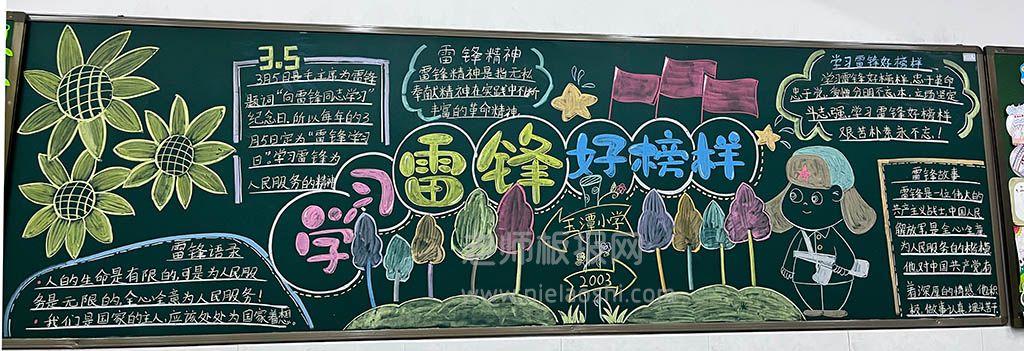 3.5
3月5日是毛主席为雷锋
题词"向雷锋同志学习"
纪念日,所以每年的3
月5日定为"雷锋学习
日"学习雷锋为
人民服务的精神
雷锋精神
雷锋精神是指无私
奉献精神在实践中不断
丰富的革命精神
学习雷锋好榜样
学习雷锋好榜样,忠于革命
忠于党,爱憎分明不忘本,立场坚定
斗志强,学习雷锋好榜样
艰苦朴素永不忘!
学习雷锋好榜样
雷锋语录
·人的生命是有限的,可是为人民服
务是无限的,全心全意为人民服务!
·我们是国家的主人,应该处处为国家着想。
玉潭小学
2003
雷锋故事
雷锋是一位伟大的
共产主义战士,中国人民
解放军是全心全意
为人民服务的楷模
他对中国共产党有
着深度的情感,他积
极,做事认真,埋头苦干
老师板报网